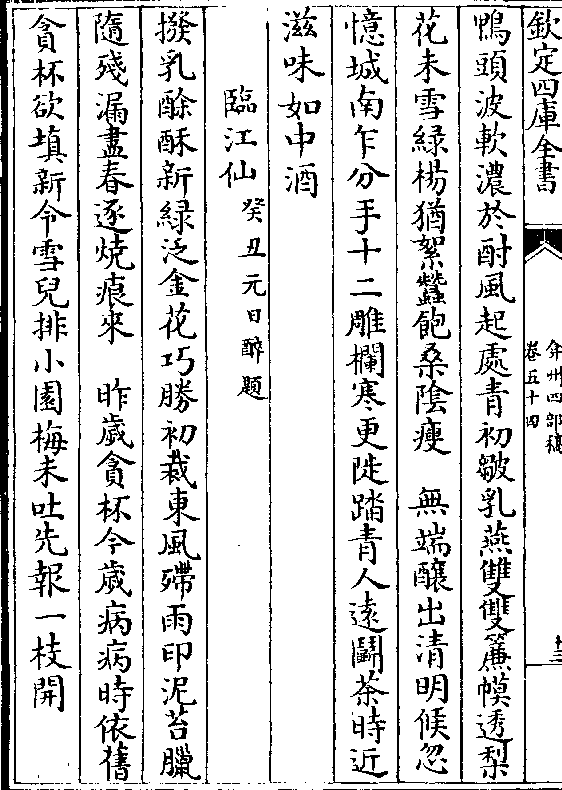 欽定四庫全書
弇州四部稿
卷五十四
十三
鴨頭波軟濃於酎風起處青初皺乳燕雙雙簾幙透梨
花未雪綠楊猶絮蠶飽桑陰瘦　無端釀出清明候忽
憶城南乍分手十二雕欄寒更陡踏青人遠鬭茶時近
滋味如中酒
臨江仙　癸丑元日醉題
撥乳酴酥新綠泛金花巧勝初裁東風殢雨印泥苔臘
隨殘漏盡春逐燒痕來　昨歲貪杯今歲病病時依舊
貪杯欲填新令雪兒排小園梅未吐先報一枝開